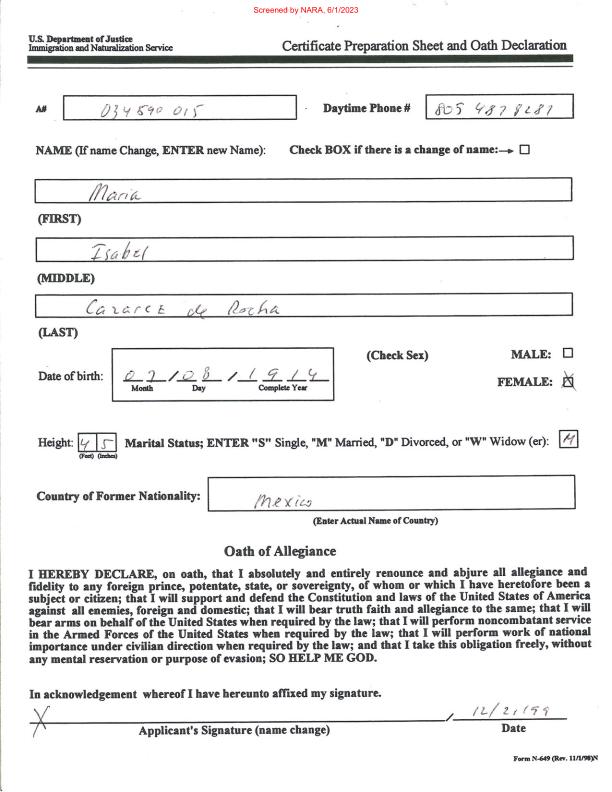 Screened by NARA, 6/1/2023
U.S. Department of Justice
Immigration and Naturalization Service
Certificate Preparation Sheet and Oath Declaration
A# 034 590 015 Daytime Phone # 805 487 8281
NAME (If name Change, ENTER new Name): Check BOX if there is a change of name:→
Maria
(FIRST)
Isabel
(MIDDLE)
Cazarez de Rocha
(LAST)
(Check Sex) MALE:
Date of birth: 07/08/1914
Month Day Complete Year
FEMALE: X
Height: 4 5 Marital Status; ENTER "S" Single, "M" Married, "D" Divorced, or "W" Widow (er): M
(Feet) (Inches)
Country of Former Nationality: Mexico
(Enter Actual Name of Country)
Oath of Allegiance
I HEREBY DECLARE, on oath, that I absolutely and entirely renounce and abjure all allegiance and
fidelity to any foreign prince, potentate, state, or sovereignty, of whom or which I have heretofore been a
subject or citizen; that I will support and defend the Constitution and laws of the United States of America
against all enemies, foreign and domestic; that I will bear truth faith and allegiance to the same; that I will
bear arms on behalf of the United States when required by the law; that I will perform noncombatant service
in the Armed Forces of the United States when required by the law; that I will perform work of national
importance under civilian direction when required by the law; and that I take this obligation freely, without
any mental reservation or purpose of evasion; SO HELP ME GOD.
In acknowledgement whereof I have hereunto affixed my signature.
X 12/2/99
Applicant's Signature (name change) Date
Form N-649 (Rev. 11/1/98)N